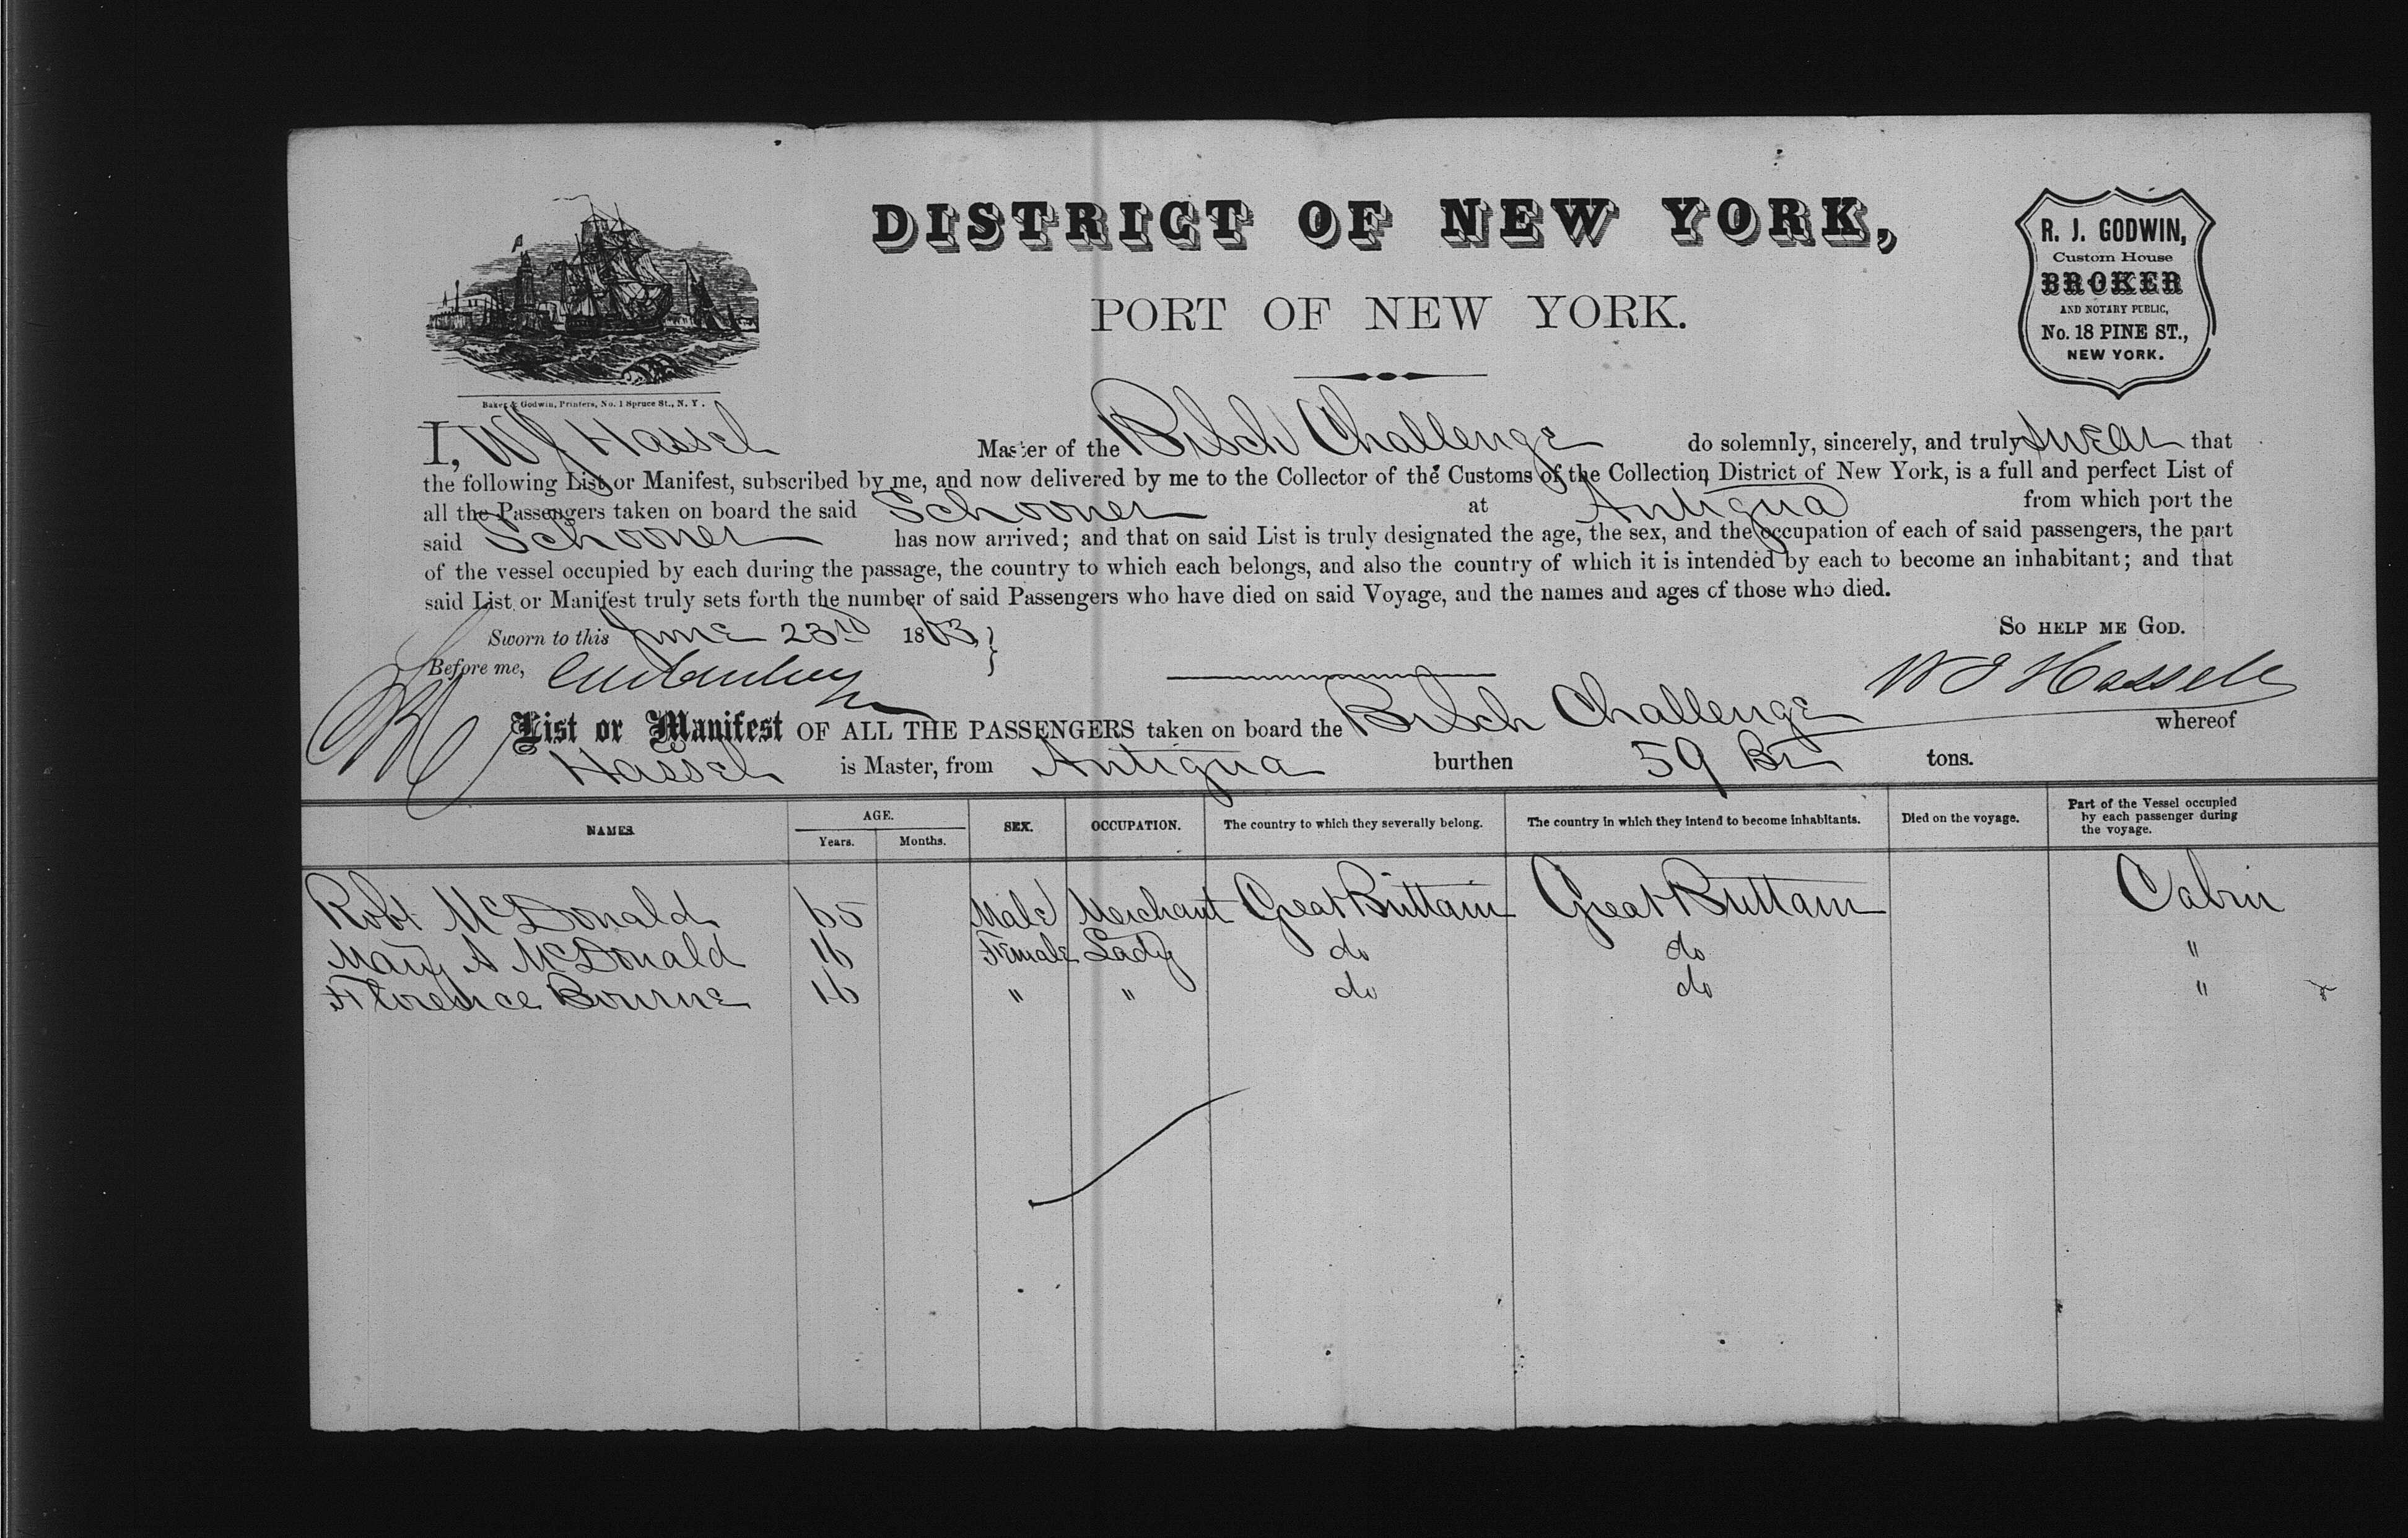 DISTRICT OF NEW YORK,
PORT OF NEW YORK.
R. J. GODWIN,
Custom House
BROKER
AND NOTARY PUBLIC,
No. 18 PINE ST.,
NEW YORK.
Baker & Godwin, Printers, No. 1 Spruce St., N. Y.
I, W J Hassel Master of the Br Sch Challenge do solemnly, sincerely, and truly swear that
the following List or Manifest, subscribed by me, and now delivered by me to the Collector of the Customs of the Collection District of New York, is a full and perfect List of
all the Passengers taken on board the said Schooner at Antigua from which port the
said Schooner has now arrived; and that on said List is truly designated the age, the sex, and the occupation of each of said passengers, the part
of the vessel occupied by each during the passage, the country to which each belongs, and also the country of which it is intended by each to become an inhabitant; and that
said List or Manifest truly sets forth the number of said Passengers who have died on said Voyage, and the names and ages of those who died.
Sworn to this June 23rd 1863 So HELP ME GOD.
Before me,
W J Hassell
List or Manifest OF ALL THE PASSENGERS taken on board the Br Sch Challenge whereof
Hassel is Master, from Antigua burthen 59 Br tons.
NAMES AGE. Years. Months. SEX. OCCUPATION. The country to which they severally belong. The country in which they intend to become inhabitants. Died on the voyage. Part of the Vessel occupied by each passenger during the voyage.
Robt McDonald 65 Male Merchant Great Brittain Great Brittain Cabin
Mary A McDonald 16 Female Lady do do "
Florence Bourne 16 " " do do "